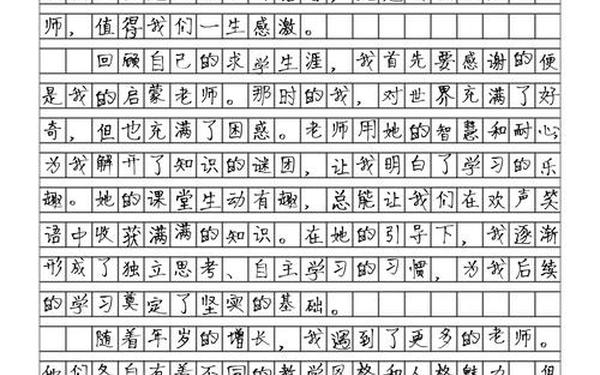 师，值得我们一生感激。
回顾自己的求学生涯，我首先要感谢的便
是我的启蒙老师。那时的我，对世界充满了好
奇，但也充满了困惑。老师用她的智慧和耐心
为我解开了知识的谜团，让我明白了学习的乐
趣。她的课堂生动有趣，总能让我们在欢声笑
语中收获满满的知识。在她的引导下，我逐渐
形成了独立思考、自主学习的习惯，为我后续
的学习奠定了坚实的基础。
随着年岁的增长，我遇到了更多的老师。
他们各自有着不同的教学风格和人格魅力，但